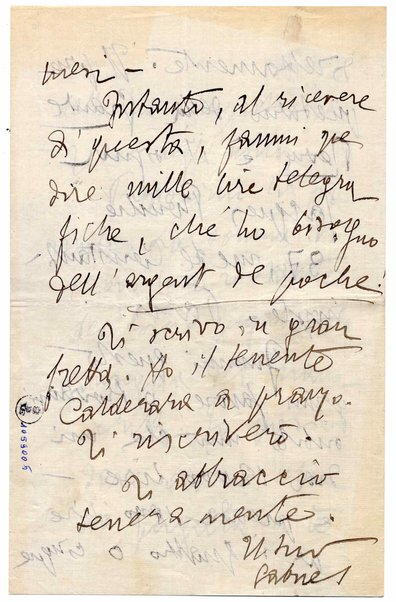 mesi –
Intanto, al ricevere
di questa, fammi spe
dire mille lire telegra
fiche, ché ho bisogno
dell'argent de poche!
Ti scrivo in gran
fretta. Ho il tenente
Calderara a pranzo.
Ti riscriverò.
Ti abbraccio
teneramente.
Il tuo
Gabriel